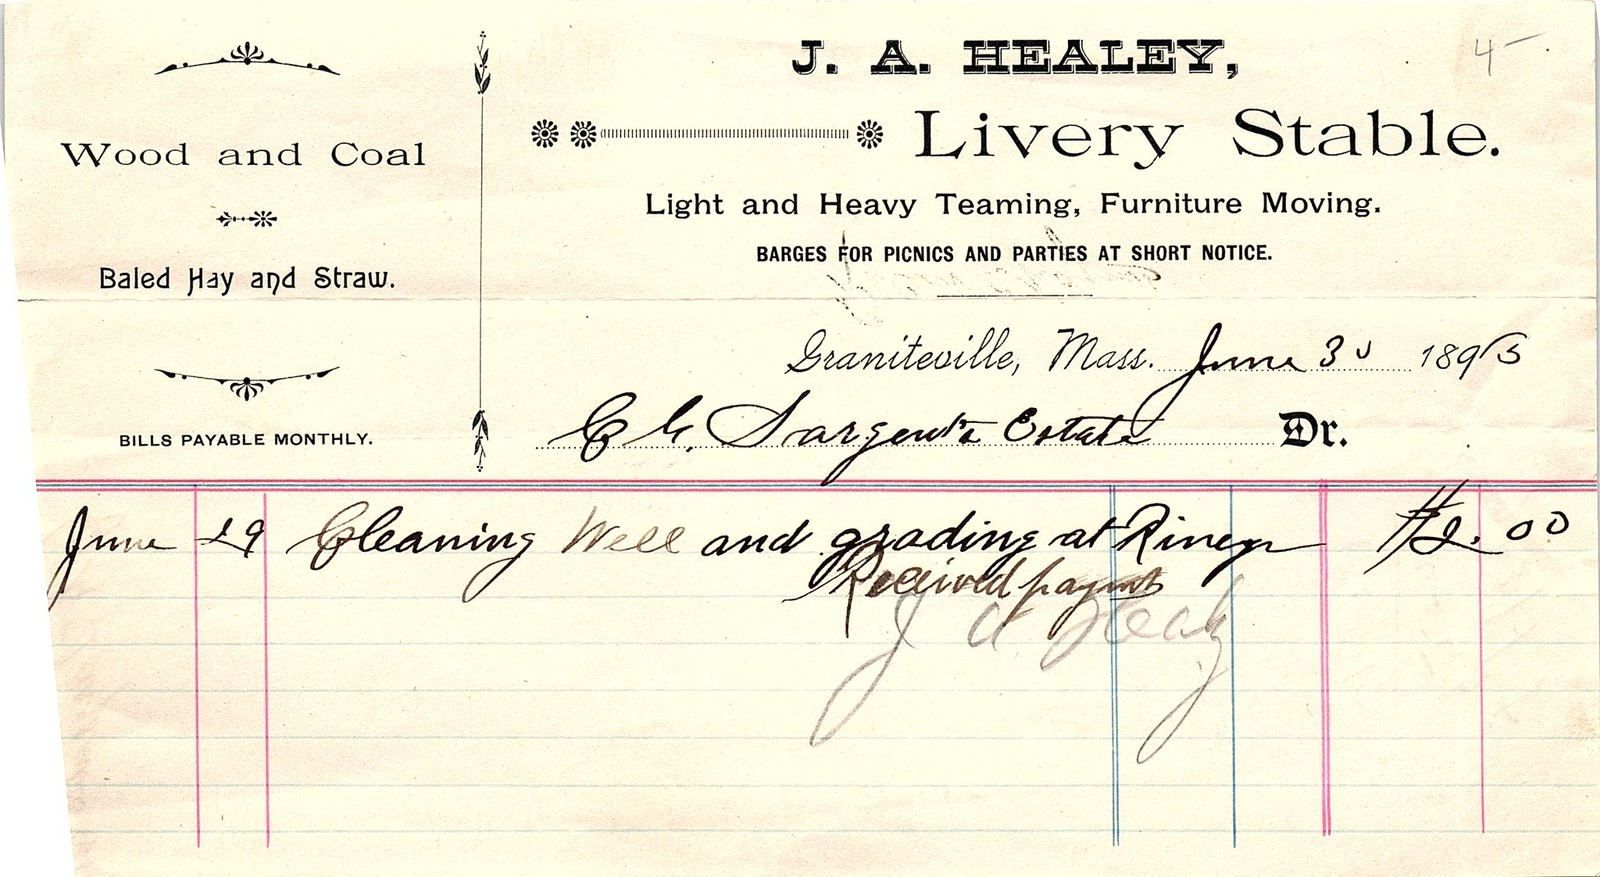 Wood and Coal
Baled Hay and Straw.
BILLS PAYABLE MONTHLY.
4-
J. A. HEALEY,
Livery Stable.
Light and Heavy Teaming, Furniture Moving.
BARGES FOR PICNICS AND PARTIES AT SHORT NOTICE.
Graniteville, Mass. June 30 1895
C G. Sargent's Estate Dr.
June 29 Cleaning Well and grading at $2.00
Received paymt
J A Healy